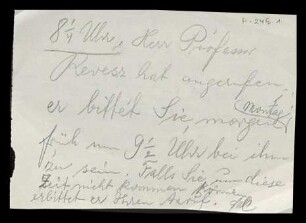 P-246 1
8¼ Uhr, Herr Professor
Revesz hat angerufen,
er bittet Sie, morgen (Montag)
früh um 9½ Uhr bei ihm
zu sein. Falls Sie um diese
Zeit nicht kommen können
erbittet er Ihren Anruf.